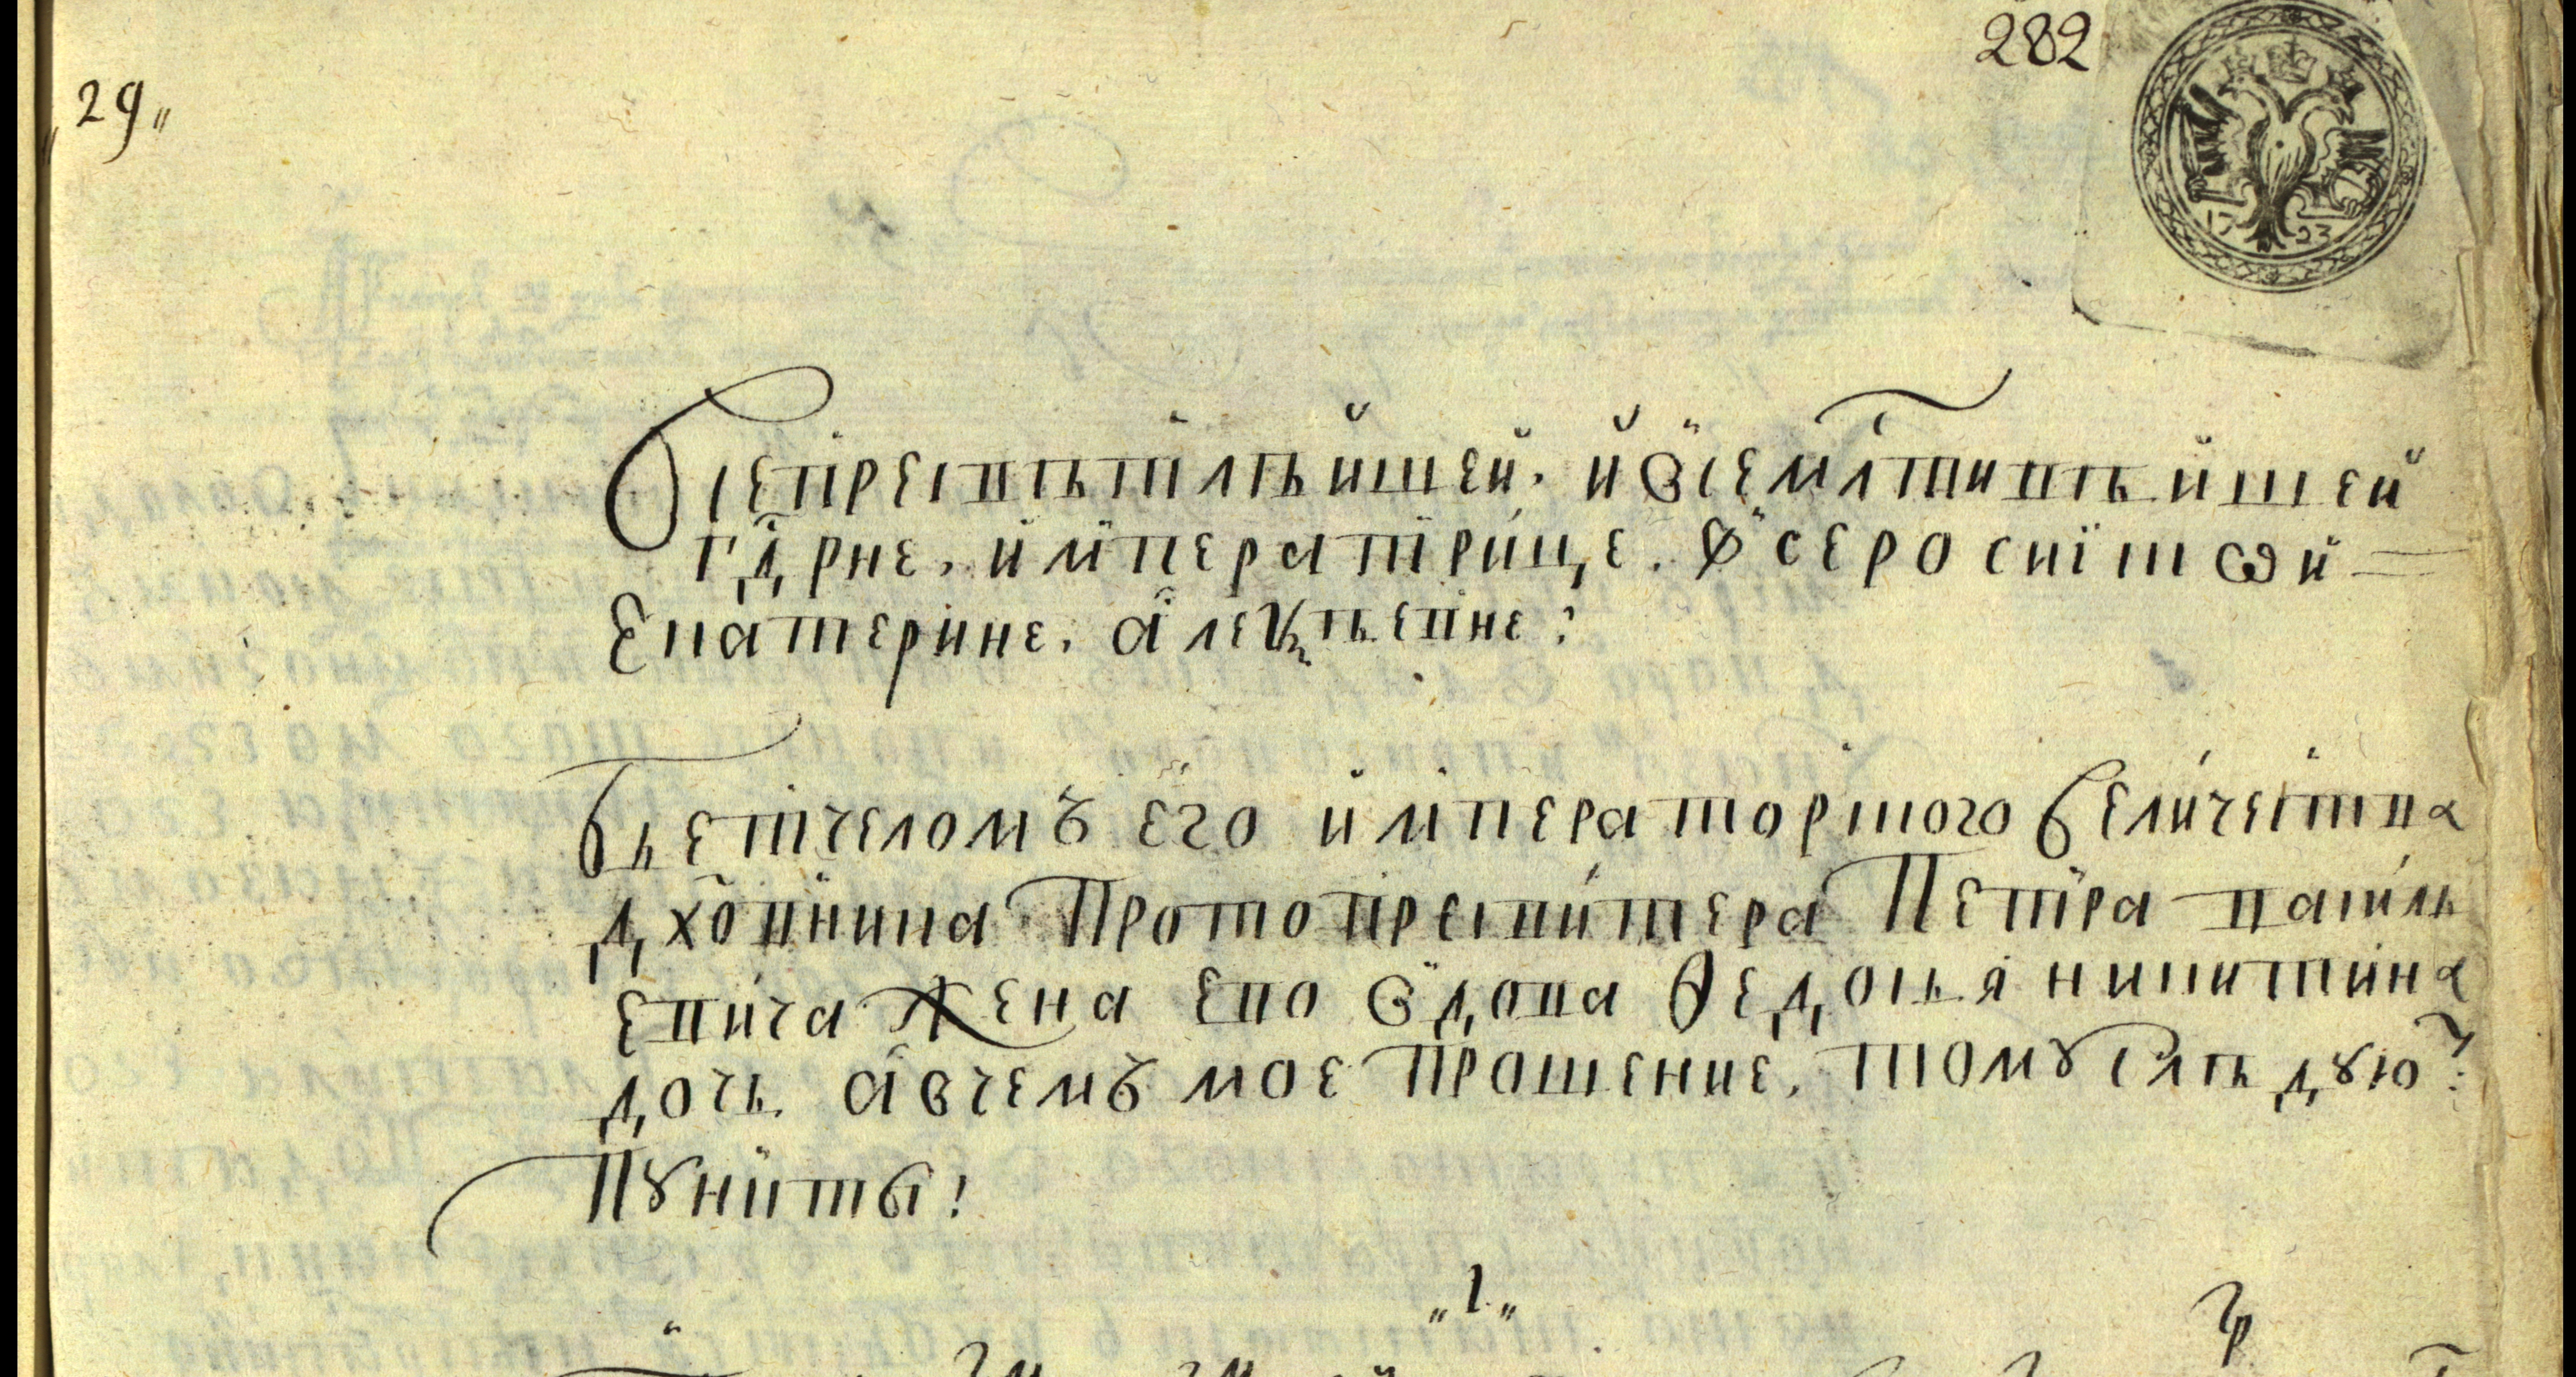 29
282
1723
Всепресветлѣйшей. й всемлтивѣйшей
гдрне. императрице. всеросиiской
Екатерине. алеѯѣевне:
Бьетчеломъ его императорского величества
дховника Протопресвитера Петра василь
евича Жена ево вдова Ѳедосья никитина
дочь. а вчемъ мое прошение. тому слѣдую?
пункты:
1